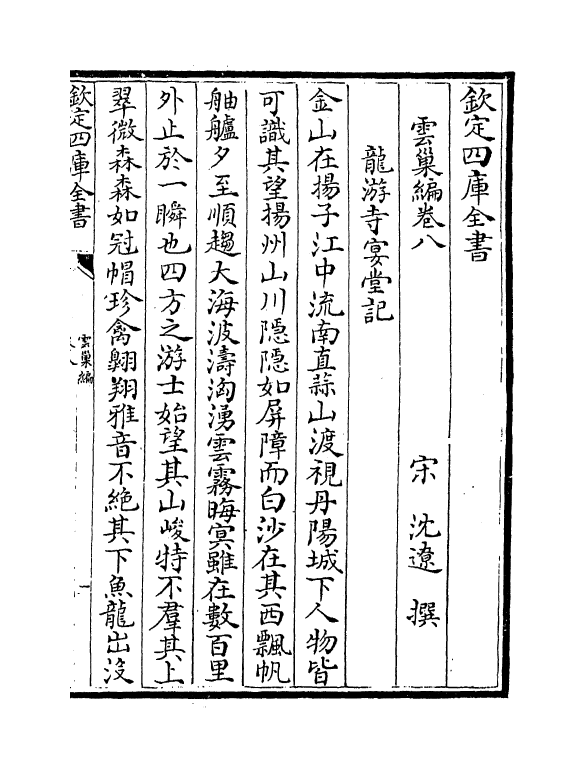 欽定四庫全書
雲巢編卷八
宋 沈遼 撰
龍游寺宴堂記
金山在揚子江中流南直蒜山渡視丹陽城下人物皆
可識其望揚州山川隱隱如屏障而白沙在其西飄帆
舳艫夕至順趨大海波濤洶湧雲霧晦冥雖在數百里
外止於一瞬也四方之游士始望其山峻特不羣其上
翠微森森如冠帽珍禽翺翔雅音不絶其下魚龍出没
欽定四庫全書
雲巢編
一